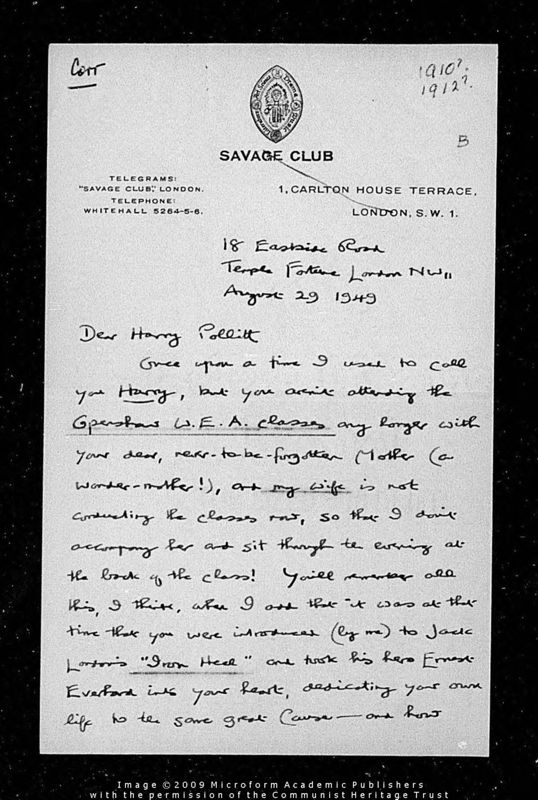 Corr
1910?.
1912?.
B
SAVAGE CLUB
TELEGRAMS:
"SAVAGE CLUB," LONDON.
TELEPHONE:
WHITEHALL 5264-5-6.
1, CARLTON HOUSE TERRACE,
LONDON, S.W. 1.
18 Eastside Road
Temple Fortune London NW11
August 29 1949
Dear Harry Pollitt
Once upon a time I used to call
you Harry, but you aren't attending the
Openshaw W.E.A. classes any longer with
your dear, never-to-be-forgotten Mother (a
wonder-mother!), and my wife is not
conducting the classes now, so that I don't
accompany her and sit through the evening at
the back of the class! You'll remember all
this, I think, when I add that it was at that
time that you were introduced (by me) to Jack
London's "Iron Heel" and took his hero Ernest
Everhard into your heart, dedicating your own
life to the same great Cause — and how
Image ©2009 Microform Academic Publishers
with the permission of the Communist Heritage Trust